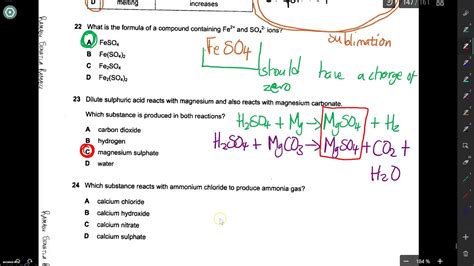 D melting increases
147 / 161 88
22 What is the formula of a compound containing Fe²⁺ and SO₄²⁻ ions?
sublimation
A FeSO₄
B Fe(SO₄)₂
C Fe₂SO₄
D Fe₂(SO₄)₂
FeSO4
should have a charge of
zero
23 Dilute sulphuric acid reacts with magnesium and also reacts with magnesium carbonate.
Which substance is produced in both reactions?
A carbon dioxide
B hydrogen
C magnesium sulphate
D water
H2SO4 + Mg → MgSO4 + H2
H2SO4 + MgCO3 → MgSO4 + CO2 +
H2O
24 Which substance reacts with ammonium chloride to produce ammonia gas?
A calcium chloride
B calcium hydroxide
C calcium nitrate
D calcium sulphate
184 %